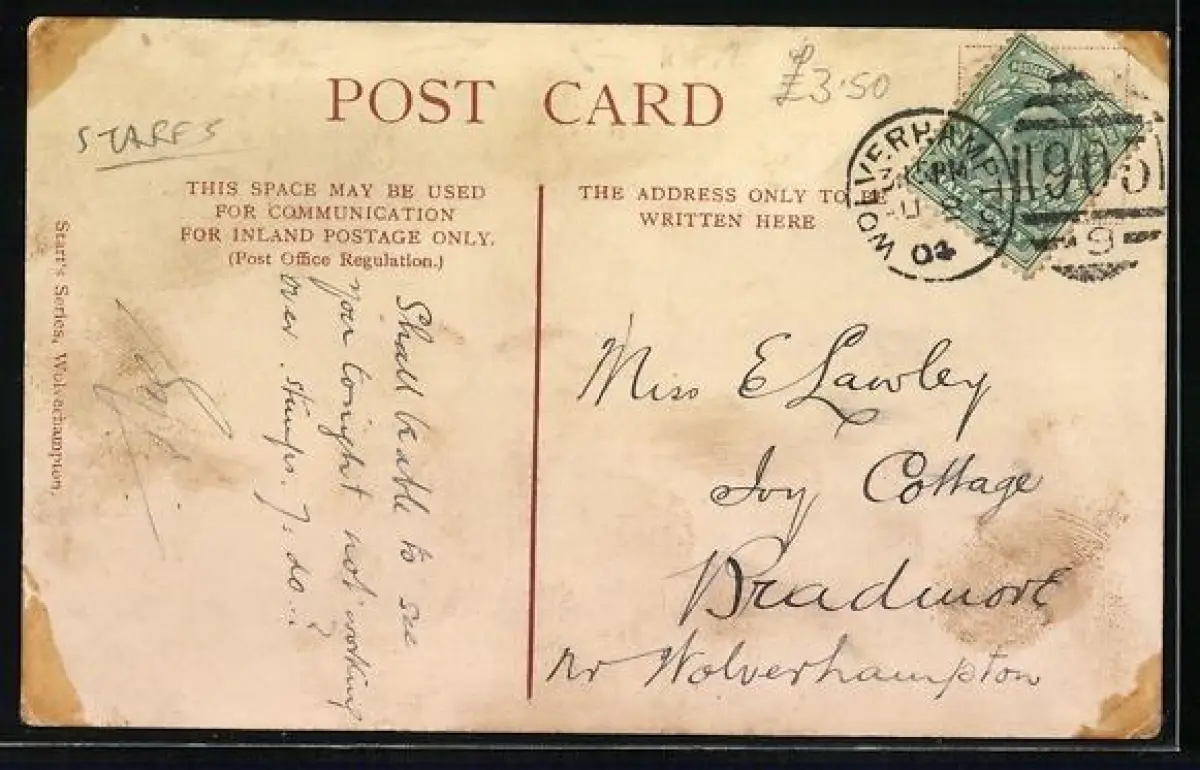 POST CARD
£3.50
STARFS
THIS SPACE MAY BE USED
FOR COMMUNICATION
FOR INLAND POSTAGE ONLY.
(Post Office Regulation.)
THE ADDRESS ONLY TO BE
WRITTEN HERE
WOLVERHAMPTON
PM
04
905
9
Starr's Series, Wolverhampton.
Shall be able to see
you tonight not working
over stumps. J. do
Miss E Lawley
Ivy Cottage
Bradmore
nr Wolverhampton